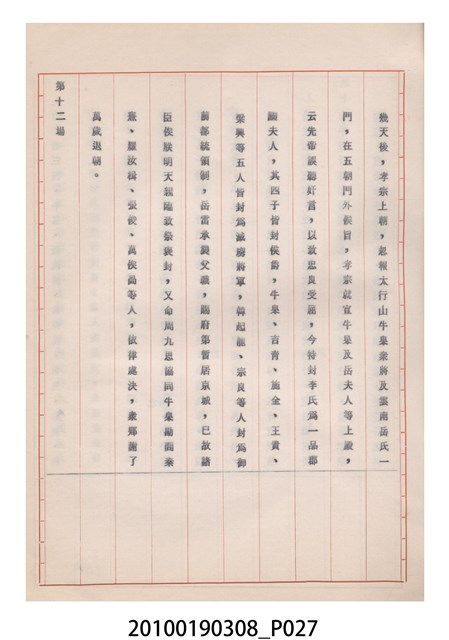 幾天後，孝宗上朝，忽報太行山牛皋眾將及雲南岳氏一
門，在五朝門外候旨，孝宗就宣牛皋及岳夫人等上殿，
云先帝誤聽奸言，以致忠良受屈，今特封李氏為一品郡
國夫人，其四子皆封侯爵，牛皋、吉青、施全、王貴、
梁興等五人皆封為滅虜將軍，韓起龍、宗良等人封為御
前都統領制，岳雷承襲父職，賜府第暫居京城，已故諸
臣俟朕明天親臨致祭褒封，又命周九思協同牛皋勘問秦
熹、羅汝楫、張俊、萬俟卨等人，依律處決，眾鄉謝了
萬歲退朝。
第十二場
20100190308_P027